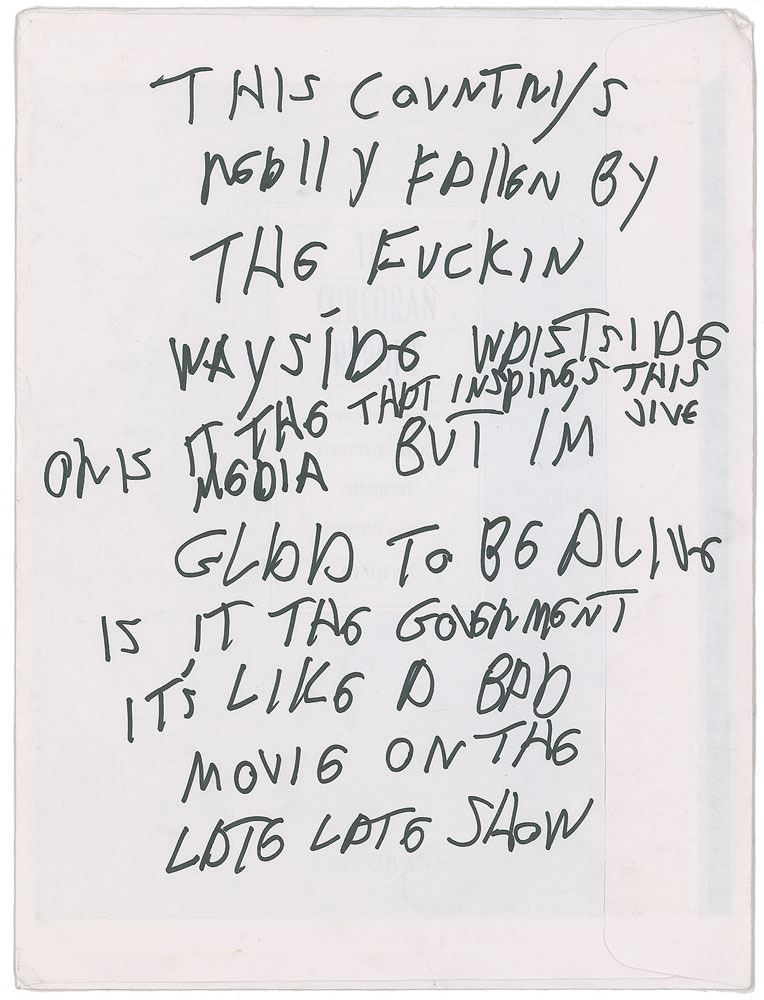 THIS COUNTRY'S
REALLY FALLEN BY
THE FUCKIN
WAYSIDE WAISTSIDE
OR IS IT THE THAT INSPIRES THIS
MEDIA BUT IM JIVE
GLAD TO BE ALIVE
IS IT THE GOVERMENT
IT'S LIKE A BAD
MOVIE ON THE
LATE LATE SHOW